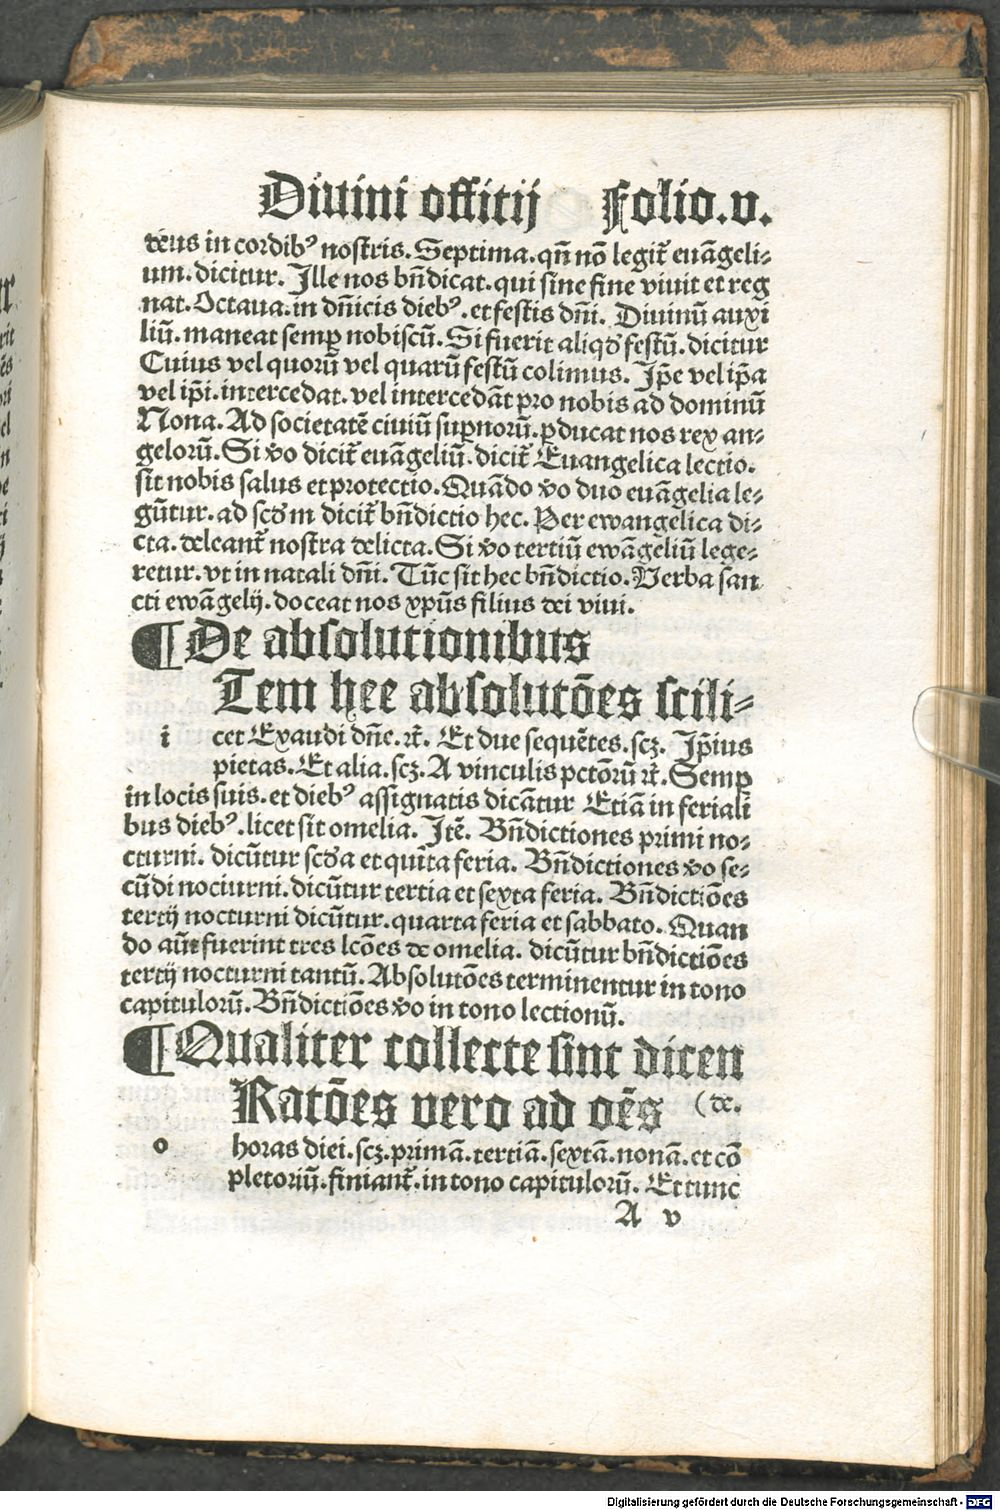 Diuini offitij Folio.v.
deus in cordibꝰ nostris. Septima. qn̄ nō legit̄ euāgeli-
um. dicitur. Ille nos bn̄dicat. qui sine fine viuit et reg
nat. Octaua. in dn̄icis diebꝰ. et festis dn̄i. Diuinū auxi
liū. maneat semꝑ nobiscū. Si fuerit aliqđ festū. dicitur
Cuius vel quorū vel quarū festū colimus. Ip̄e vel ip̄a
vel ip̄i. intercedat. vel intercedāt pro nobis ad dominū
Nona. Ad societatē ciuiū suꝑnorū. ꝑducat nos rex an-
gelorū. Si ṽo dicit̄ euāgeliū. dicit̄ Euangelica lectio.
sit nobis salus et protectio. Quādo ṽo duo euāgelia le-
gūtur. ad scđm dicit̄ bn̄dictio hec. Per ewangelica di-
cta. deleant̄ nostra delicta. Si ṽo tertiū ewāgeliū lege-
retur. vt in natali dn̄i. Tūc sit hec bn̄dictio. Verba san
cti ewāgelij. doceat nos xp̄us filius dei viui.
¶ De absolutionibus
Tem hee absolutōes scili-
i cet Exaudi dn̄e. ꝛc̄. Et due sequētes. scꝫ. Ip̄ius
pietas. Et alia. scꝫ. A vinculis pctōrū ꝛc̄. Semꝑ
in locis suis. et diebꝰ assignatis dicātur Etiā in feriali
bus diebꝰ. licet sit omelia. Itē. Bn̄dictiones primi no-
cturni. dicūtur scđa et quīta feria. Bn̄dictiones ṽo se-
cūdi nocturni. dicūtur tertia et sexta feria. Bn̄dictiōes
tertij nocturni dicūtur. quarta feria et sabbato. Quan
do aūt fuerint tres lcōes de omelia. dicūtur bn̄dictiōes
tertij nocturni tantū. Absolutōes terminentur in tono
capitulorū. Bn̄dictiōes ṽo in tono lectionū.
¶ Qualiter collecte sint dicen
Ratōes vero ad oēs (de.
o horas diei. scꝫ. primā. tertiā. sextā. nonā. et cō
pletoriū. finiant̄. in tono capitulorū. Et tunc
A v
Digitalisierung gefördert durch die Deutsche Forschungsgemeinschaft - DFG